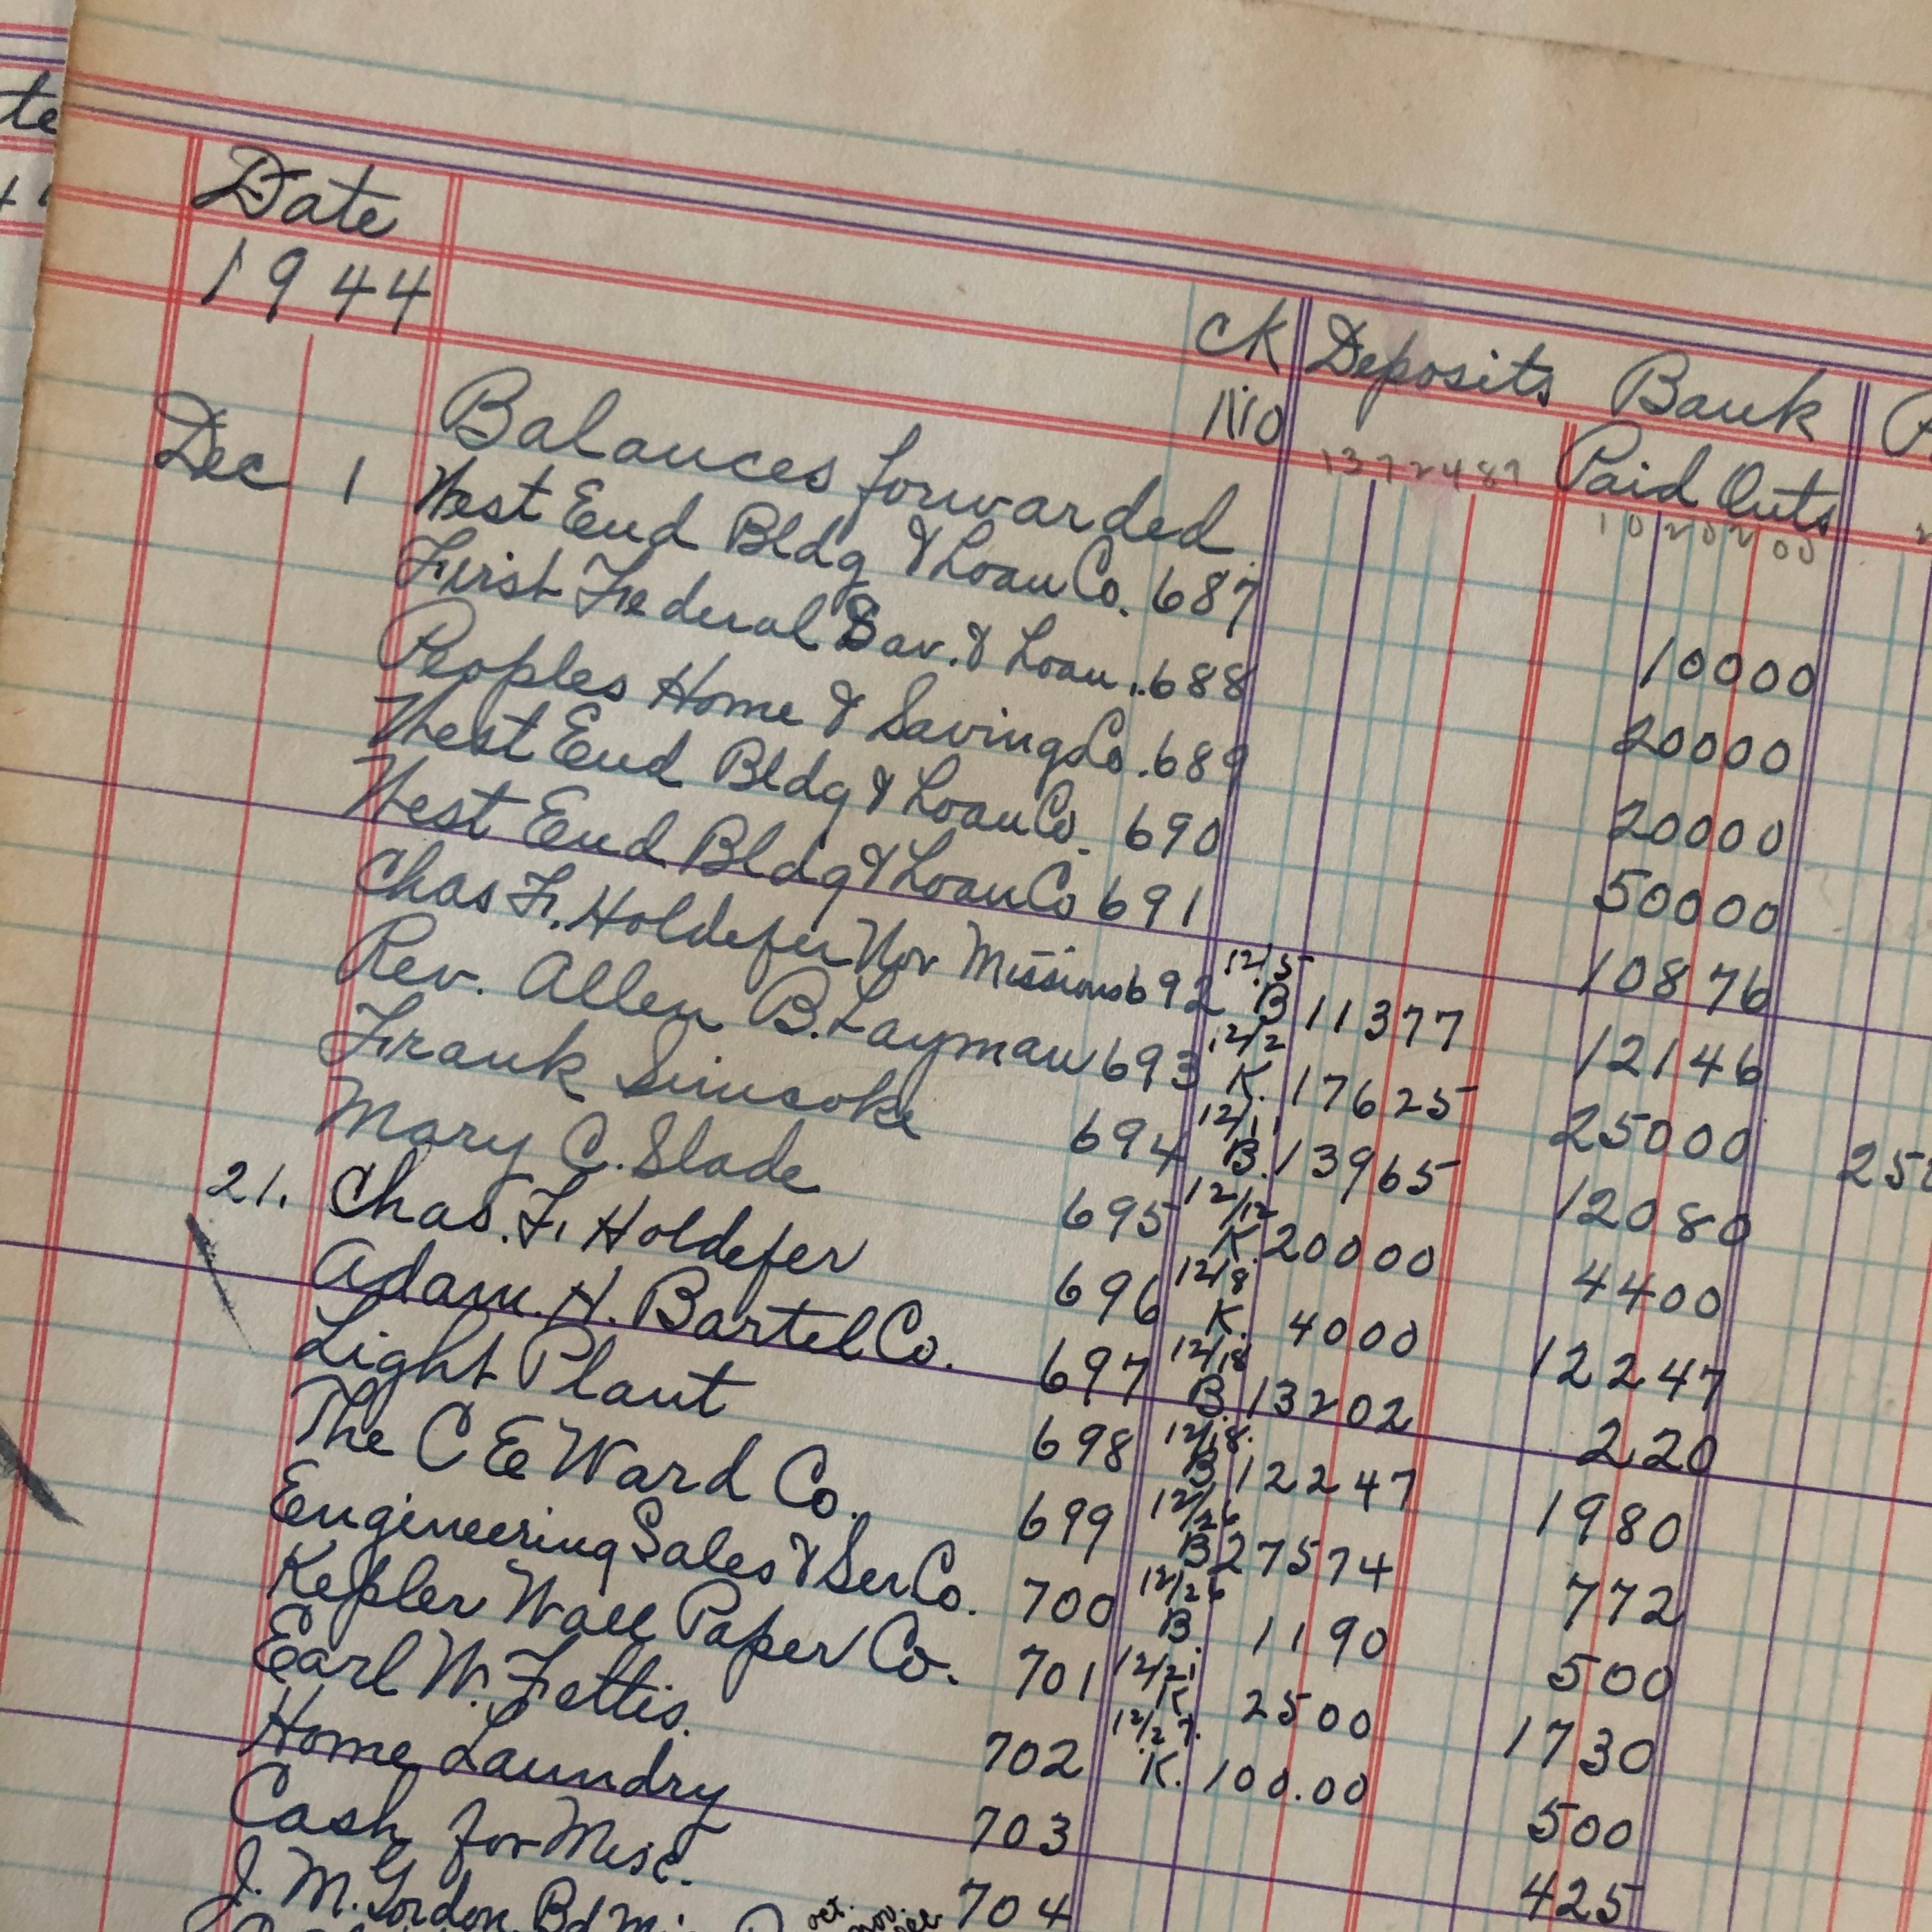 te
Date
1944
CK Deposits Bank
No 1372487 Paid Outs
1020200
Balances forwarded
Dec 1 West End Bldg & Loan Co. 687 10000
First Federal Sav. & Loan . 688 20000
Peoples Home & Savings Co. 689 20000
West End Bldg & Loan Co. 690 50000
West End Bldg & Loan Co 691 10876
Chas F. Holdefer Nov Missions 692 12/5 B 11377 12146
Rev. Allen B. Layman 693 12/2 K. 17625 25000 25
Frank Simcoke 694 12/11 B. 13965 12080
Mary C. Slade 695 12/12 K. 20000 4400
21. Chas. F. Holdefer 696 12/8 K. 4000 12247
Adam. H. Bartel Co. 697 12/18 B. 13202 220
Light Plant 698 12/18. B 12247 1980
The C E Ward Co. 699 12/26 B 27574 772
Engineering Sales & Ser Co. 700 12/26 B. 1190 500
Kepler Wall Paper Co. 701 12/21 K 2500 1730
Earl W. Fettis. 702 12/27. K. 100.00 500
Home Laundry 703 425
Cash for Misc. 704
J. M. Gordon Bd oct. nov.